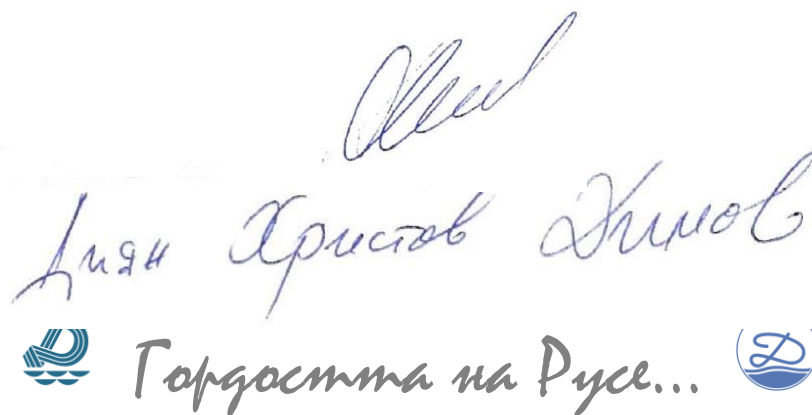 Диян Христов Димов
Гордостта на Русе...